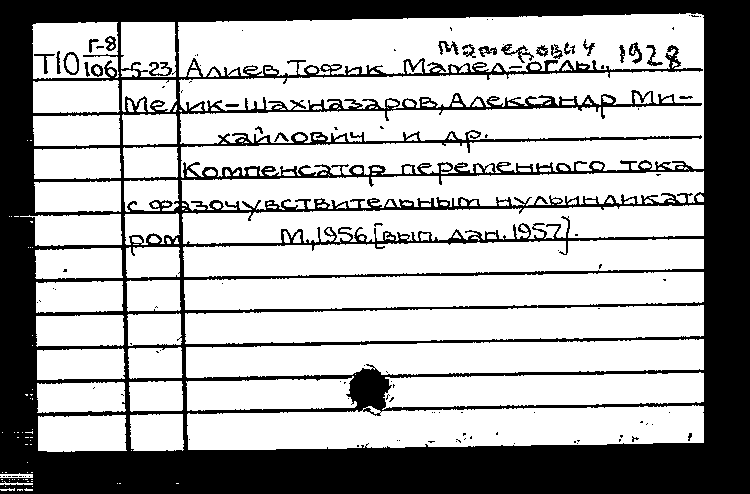 Мамедович 1928
Т10 Г-8/106 -5-23 Алиев, Тофик Мамед-оглы.,
Мелик-Шахназаров, Александр Ми-
хайлович и др.
Компенсатор переменного тока
с фазочувствительным нульиндикато
ром. М., 1956. [вып. дан. 1957].